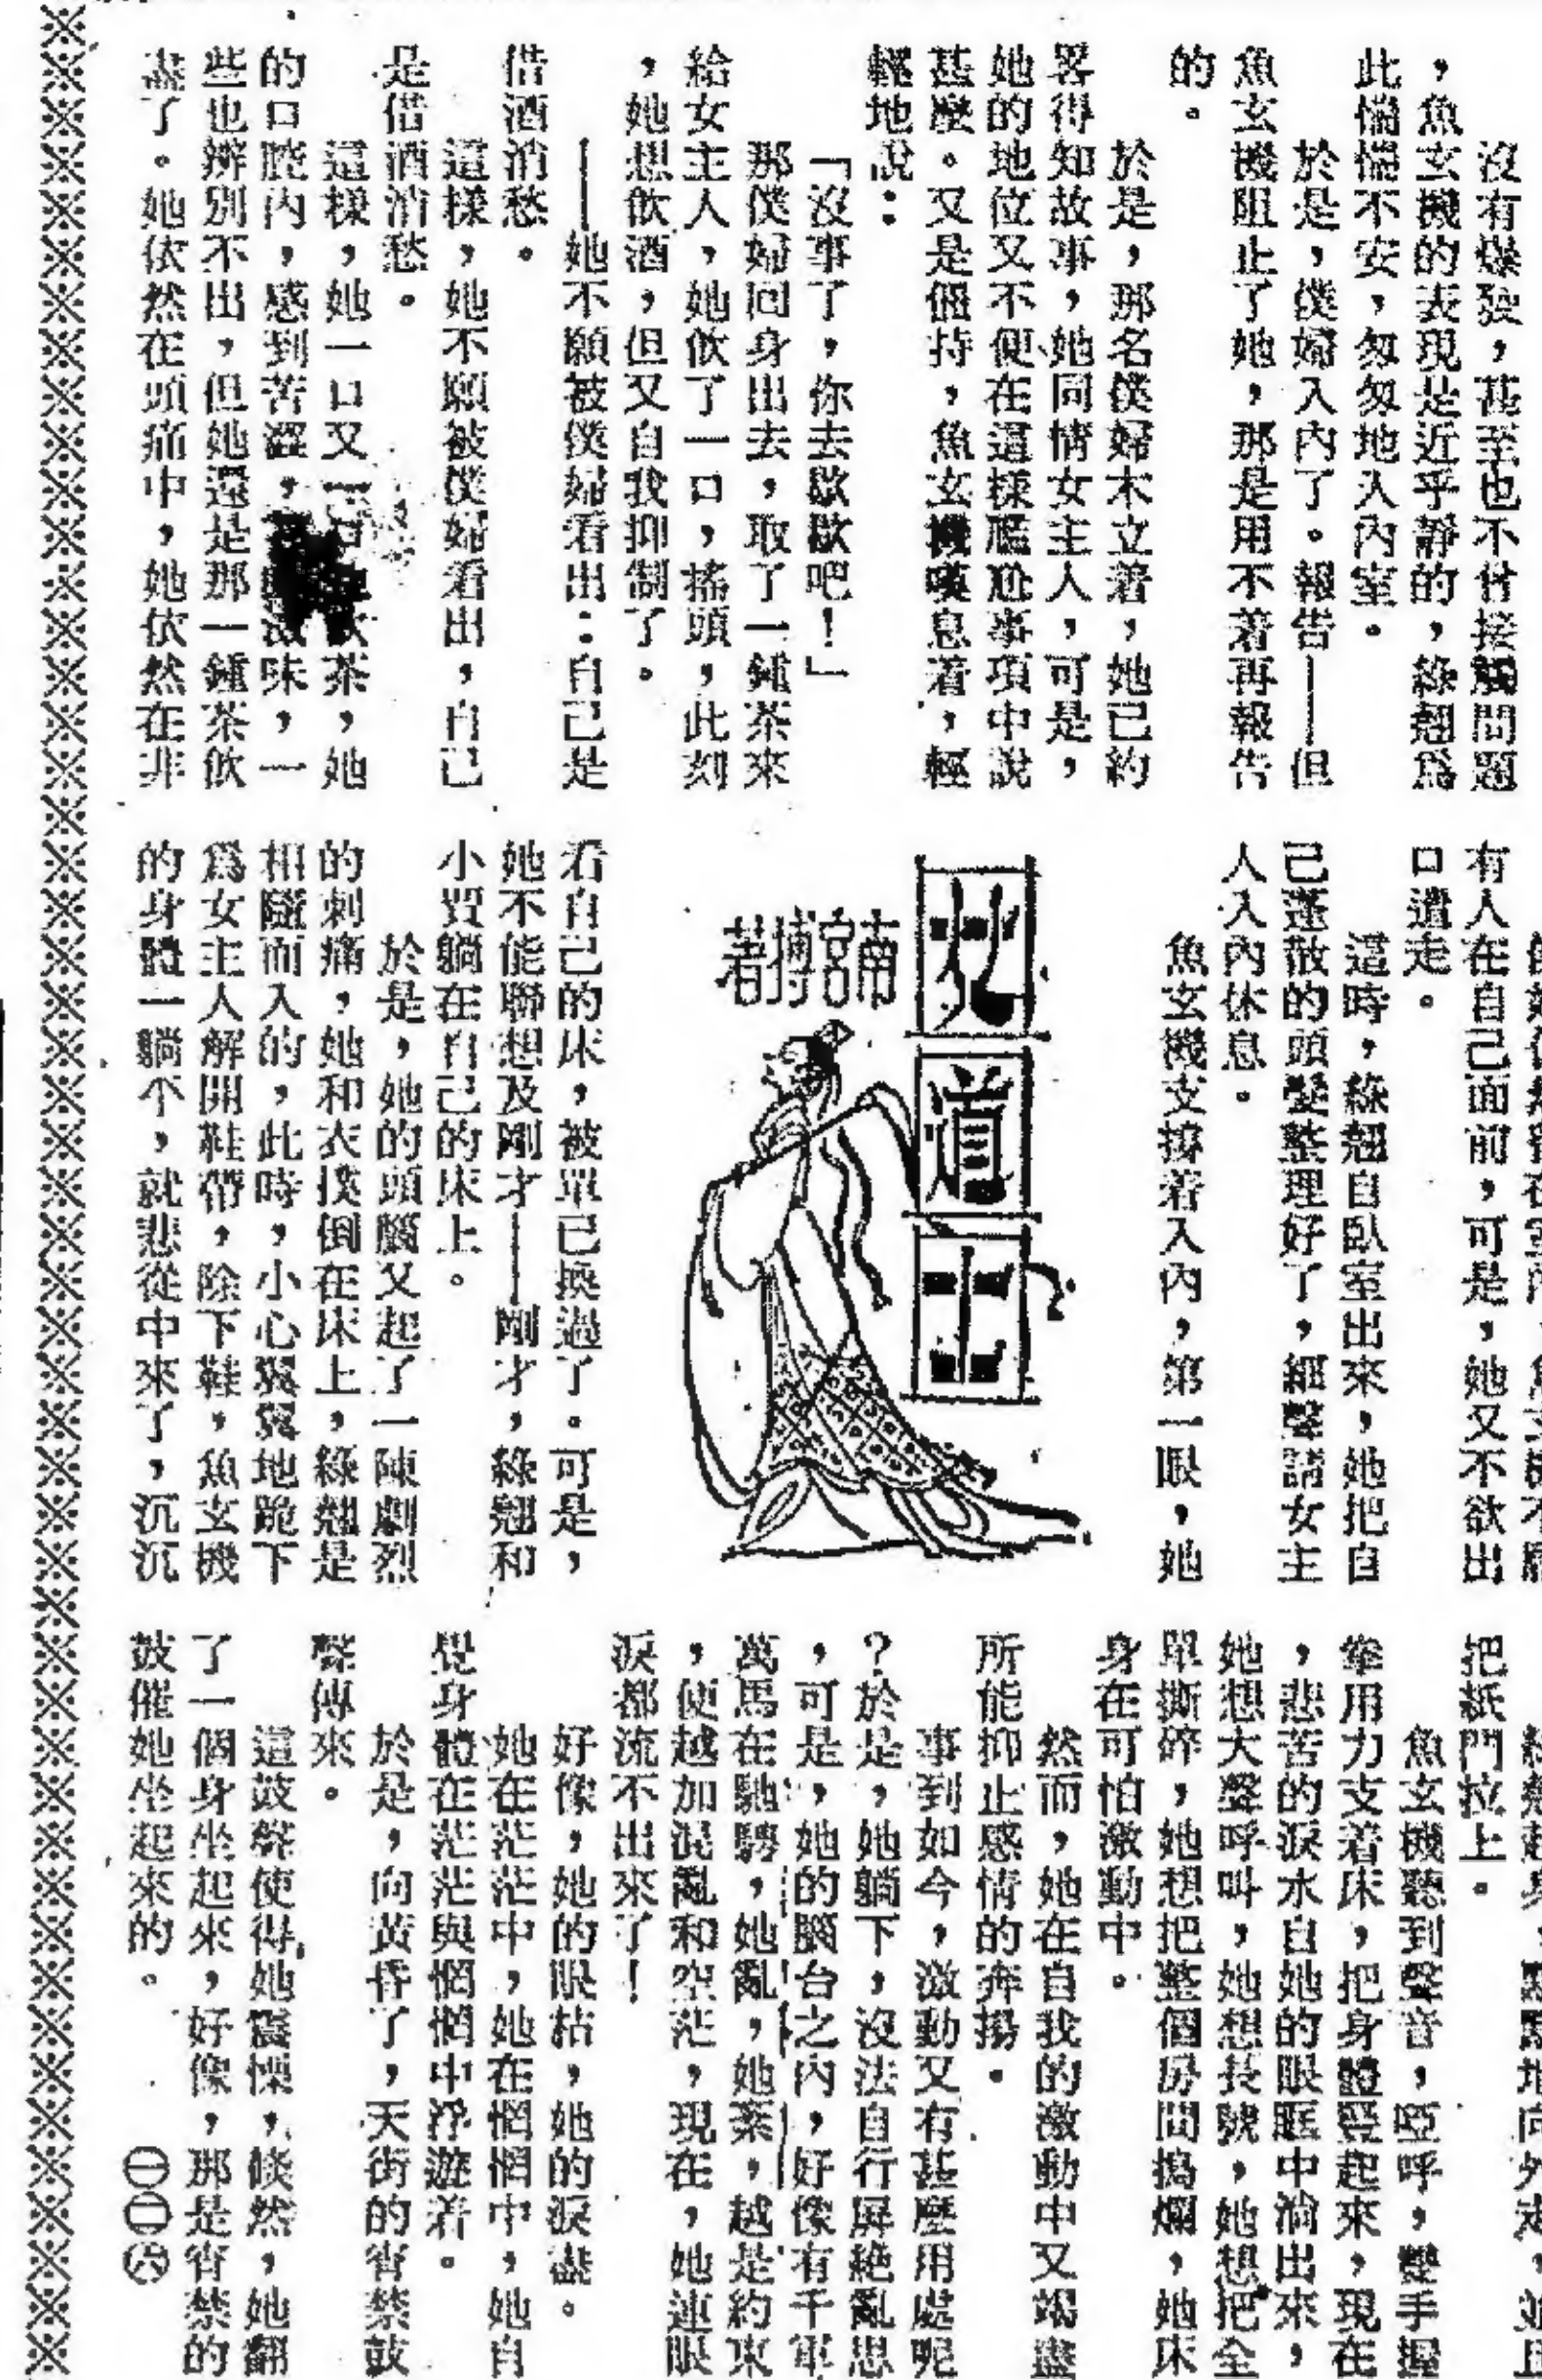 沒有爆發，甚至也不曾接觸問題
，魚玄機的表現是近乎靜的，綠翹爲
此惴惴不安，匆匆地入內室。
於是，僕婦入內了。報告——但
魚玄機阻止了她，那是用不着再報告
的。
於是，那名僕婦木立着，她已約
畧得知故事，她同情女主人，可是，
她的地位又不便在這樣尷尬事項中說
甚麼。又是僵持，魚玄機嘆息着，輕
輕地說：
「沒事了，你去歇歇吧！」
那僕婦回身出去，取了一鍾茶來
給女主人，她飲了一口，搖頭，此刻
，她想飲酒，但又自我抑制了。
——她不願被僕婦看出：自己是
借酒消愁。
這樣，她不願被僕婦看出，自己
是借酒消愁。
這樣，她一口又一口飲茶，她
的口腔內，感到苦澀，味，一
些也辨別不出，但她還是那一鍾茶飲
盡了。她依然在頭痛中，她依然在非
有人在自己面前，可是，她又不欲出
口遣走。
這時，綠翹自臥室出來，她把自
己蓬散的頭髮整理好了，細聲請女主
人入內休息。
魚玄機支撐着入內，第一眼，她
火道士
南宮搏著
看自己的床，被單已換過了。可是，
她不能聯想及剛才——剛才，綠翹和
小買躺在自己的床上。
於是，她的頭腦又起了一陣劇烈
的刺痛，她和衣撲倒在床上，綠翹是
相隨而入的，此時，小心翼翼地跪下
爲女主人解開鞋帶，除下鞋，魚玄機
的身體一躺下，就悲從中來了，沉沉
把紙門拉上。
魚玄機聽到聲音，啞呼，雙手握
拳用力支着床，把身體豎起來，現在
，悲苦的淚水自她的眼眶中淌出來，
她想大聲呼叫，她想長號，她想把全
單撕碎，她想把整個房間搗爛，她床
身在可怕激動中。
然而，她在自我的激動中又竭盡
所能抑止感情的奔揚。
事到如今，激動又有甚麼用處呢
？於是，她躺下，沒法自行屏絕亂思
，可是，她的腦台之內，好像有千軍
萬馬在馳騁，她亂，她紊，越是約束
，便越加混亂和空茫，現在，她連眼
淚都流不出來了！
好像，她的眼枯，她的淚盡。
她在茫茫中，她在惘惘中，她自
覺身體在茫茫與惘惘中浮遊着。
於是，向黃昏了，天街的宵禁鼓
聲傳來。
這鼓聲使得她震慄，倏然，她翻
了一個身坐起來，好像，那是宵禁的
鼓催她坐起來的。　㊀㊁㊅